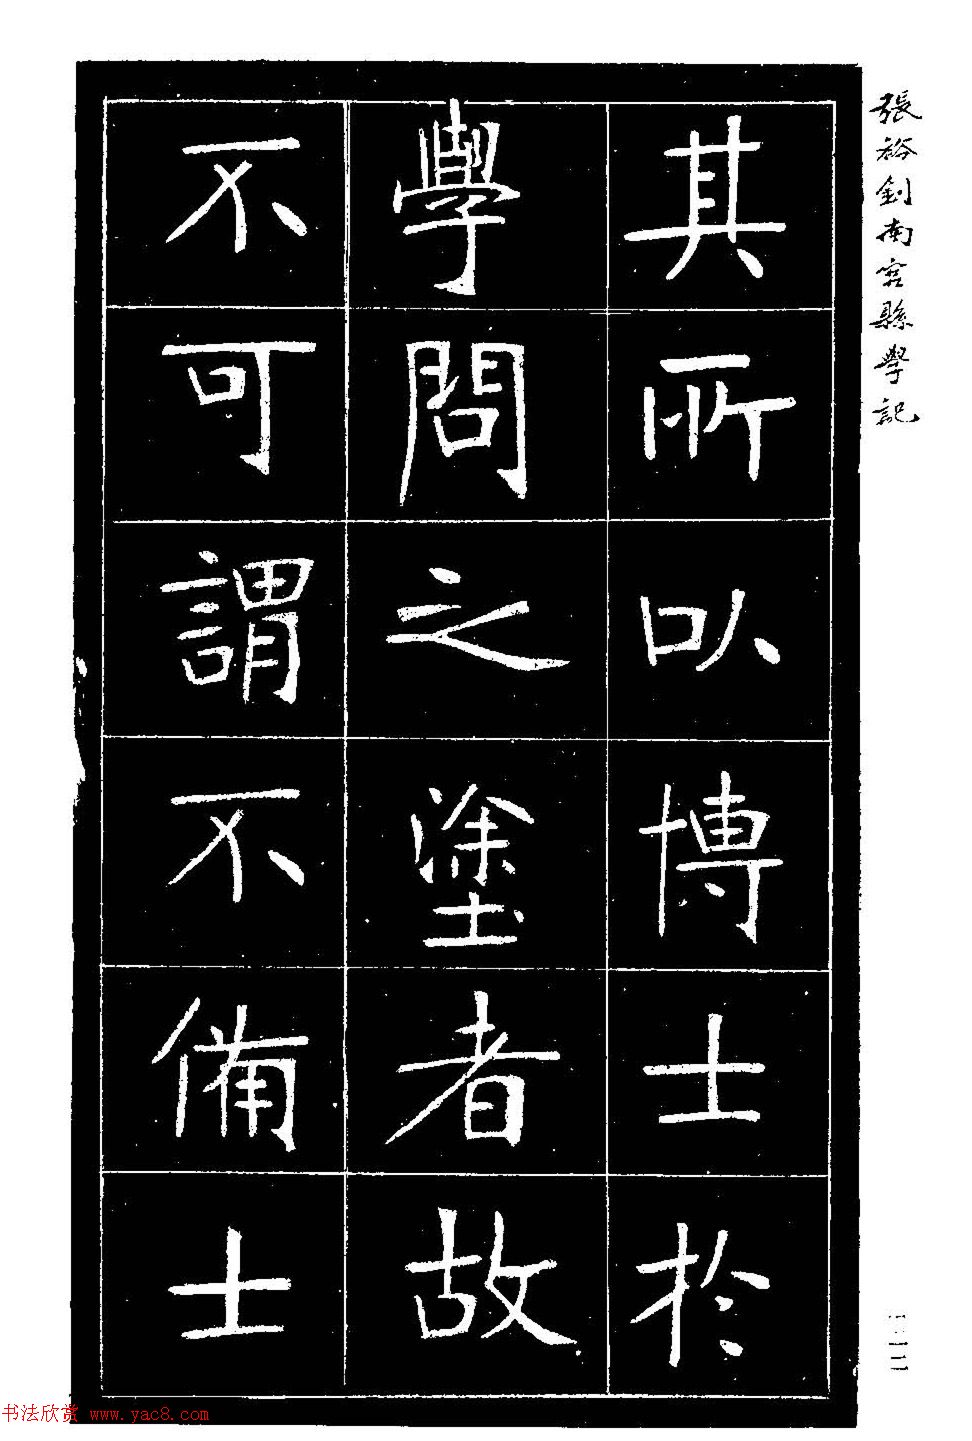 張裕釗南宮縣學記
其所以博士於
學問之塗者故
不可謂不備士
二三
书法欣赏 www.yac8.com